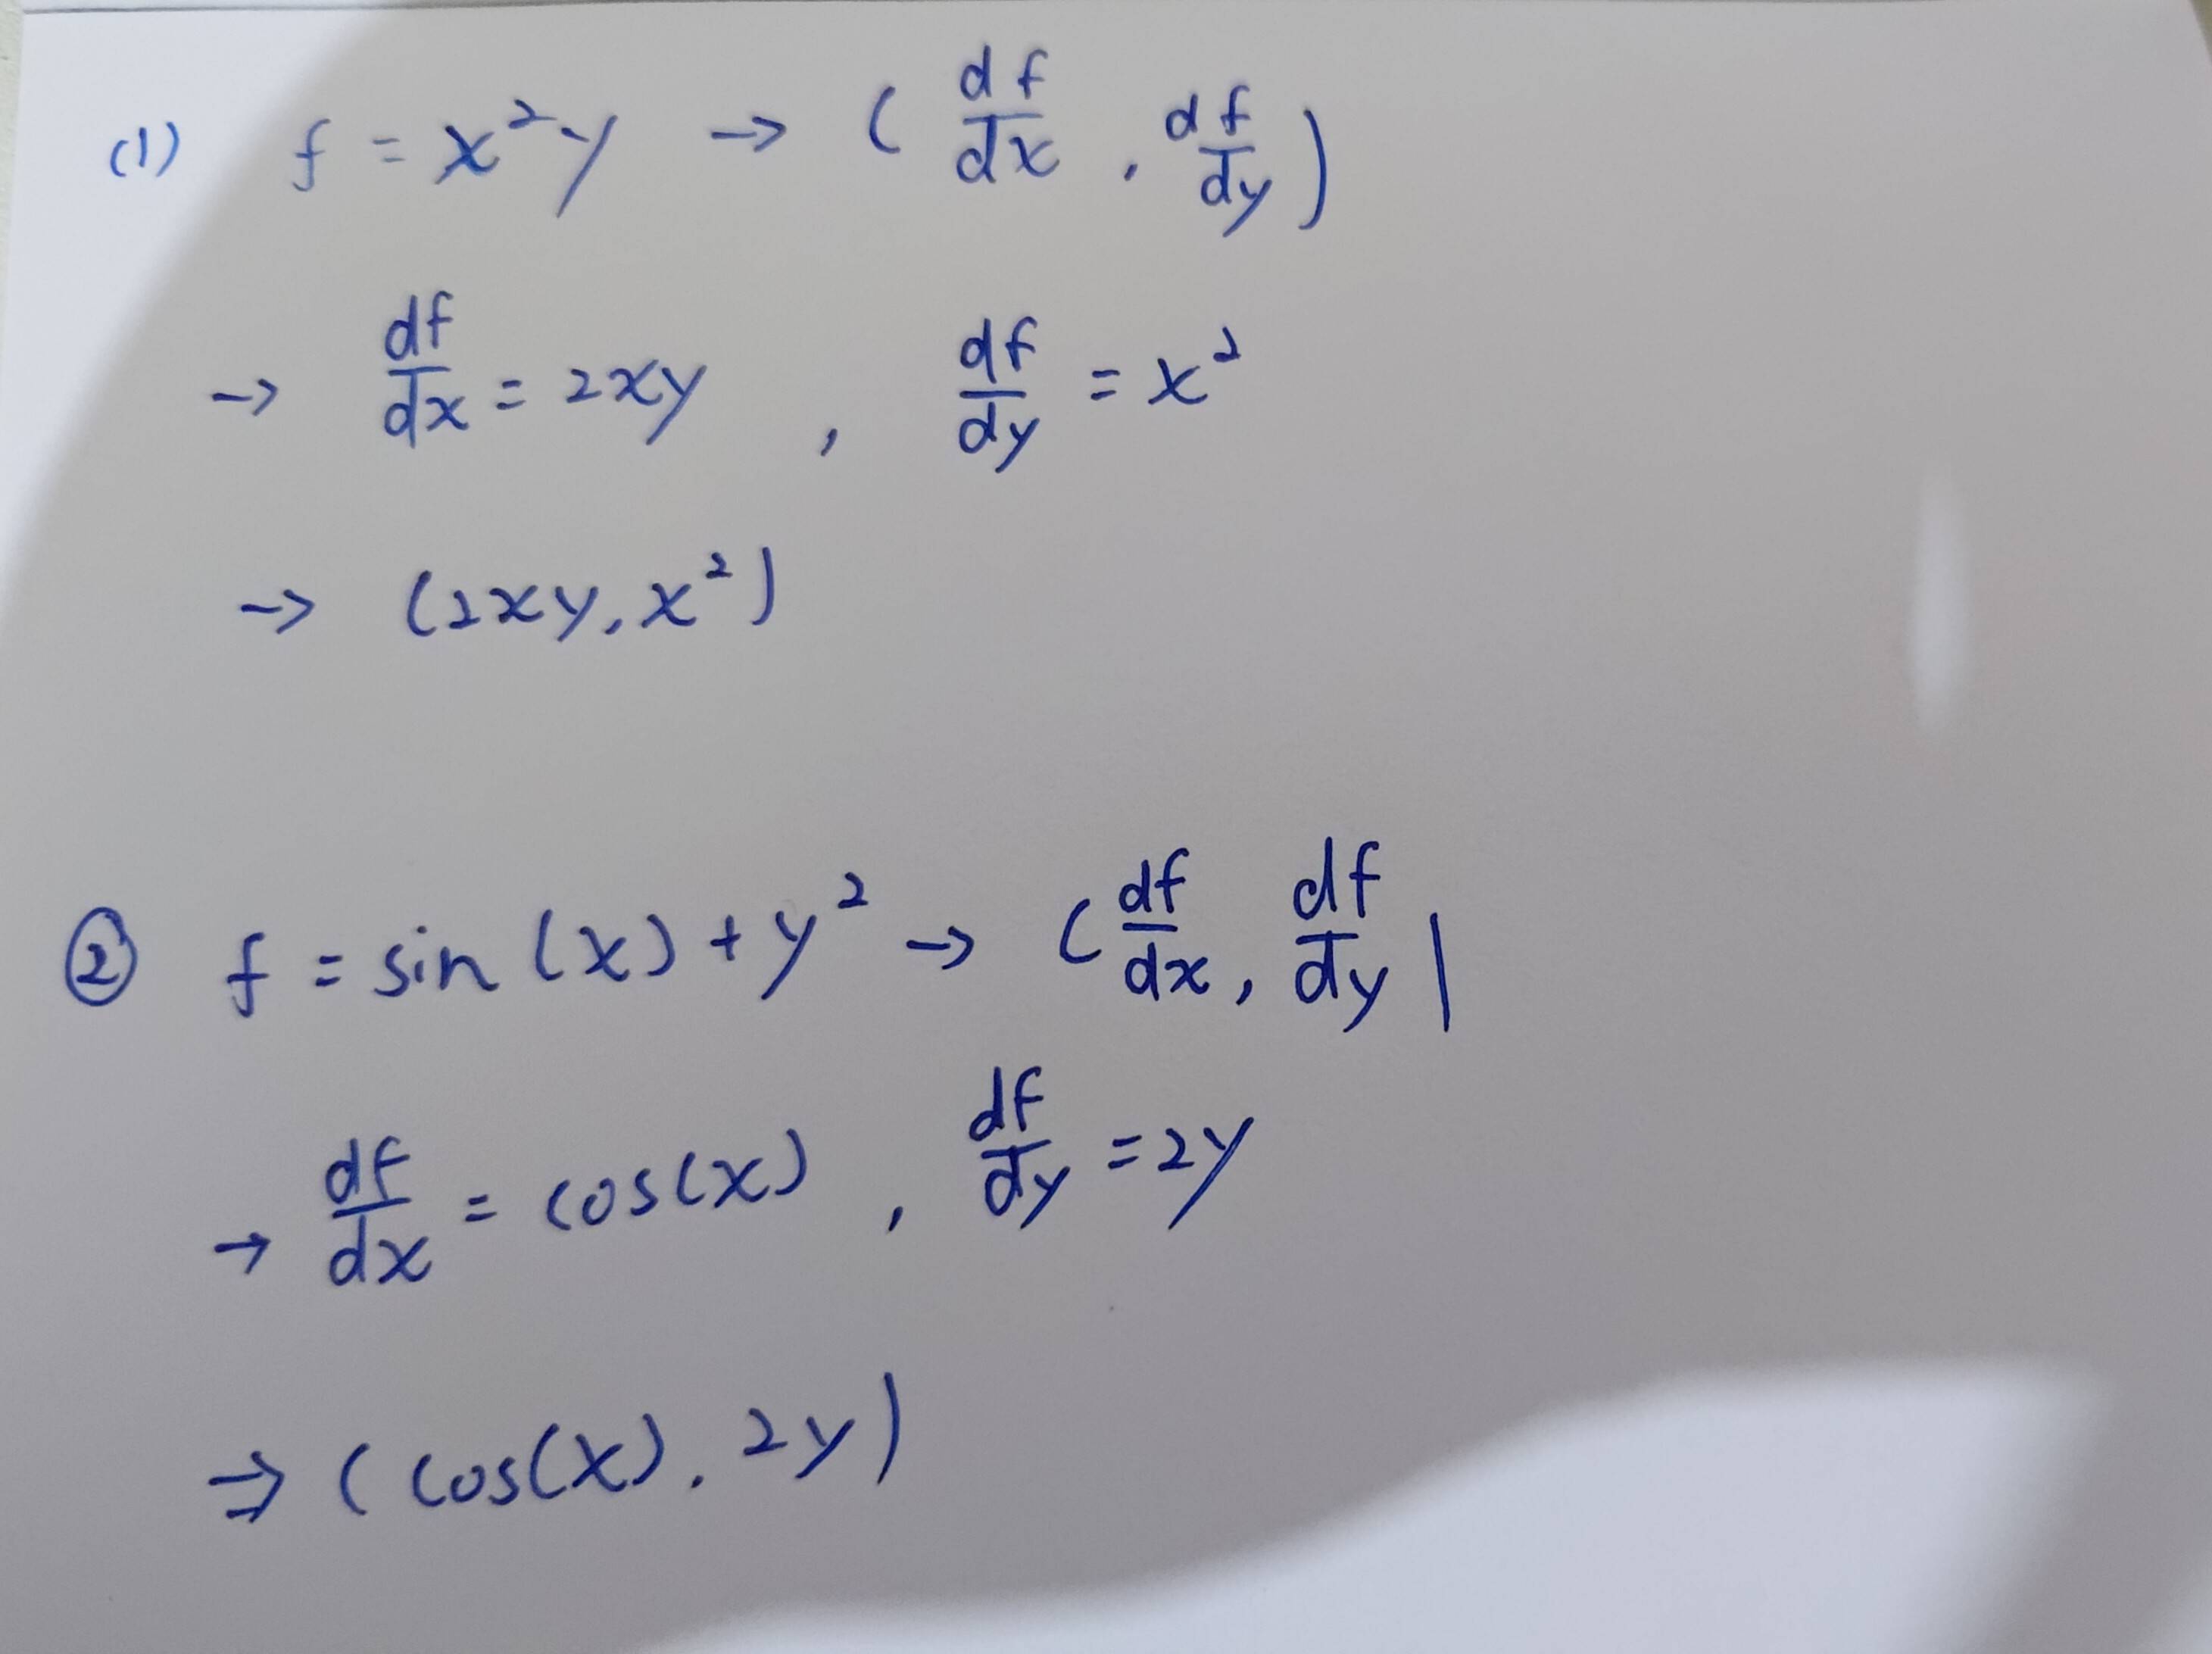 (1) f = x²y → (df/dx, df/dy)
→ df/dx = 2xy , df/dy = x²
→ (2xy, x²)
② f = sin(x) + y² → (df/dx, df/dy)
→ df/dx = cos(x) , df/dy = 2y
⇒ (cos(x), 2y)